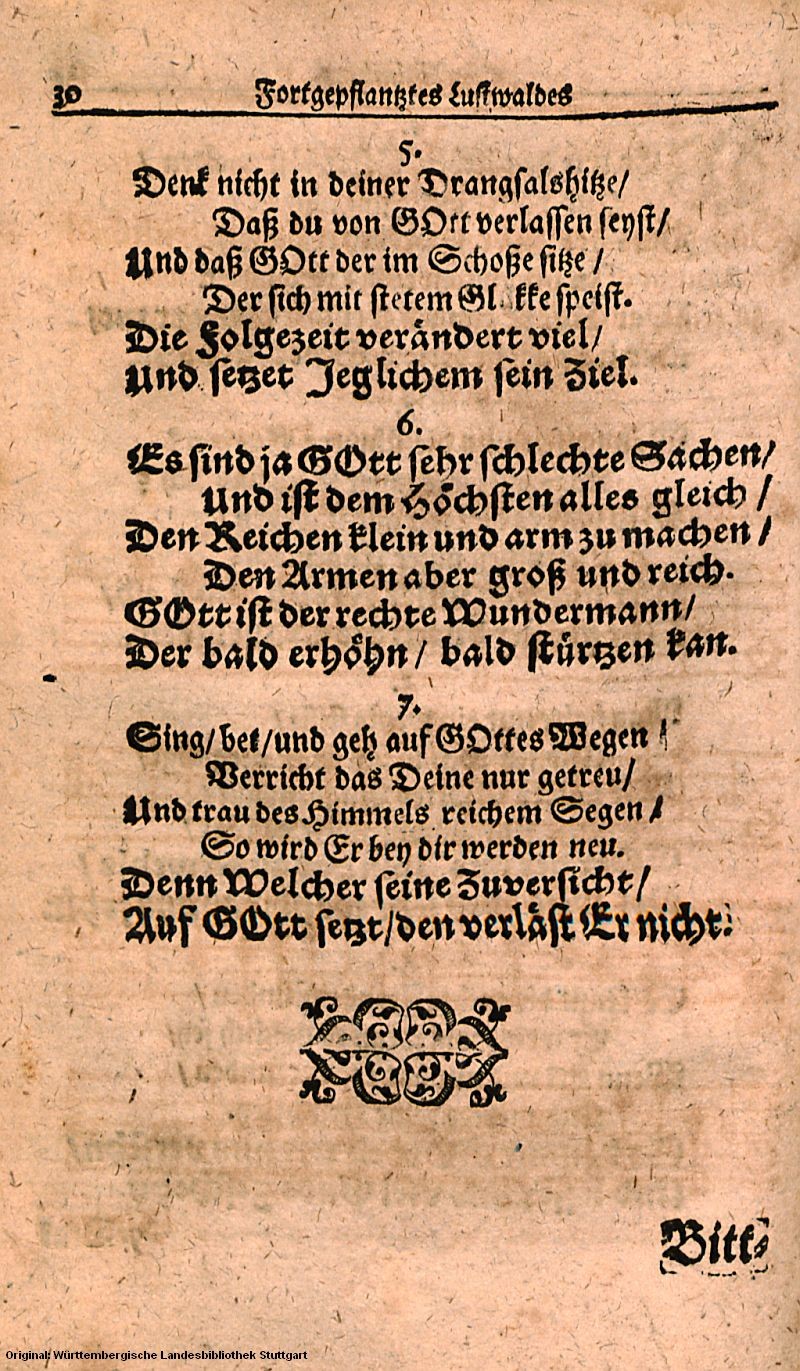 30 Fortgepflantztes Lustwaldes
5.
Denk nicht in deiner Drangsalshitze/
Daß du von GOtt verlassen seyst/
Und daß GOtt der im Schoße sitze/
Der sich mit stetem speist.
Die Folgezeit verändert viel/
Und setzet Jeglichem sein Ziel.
6.
Es sind ja GOtt sehr schlechte Sachen/
Und ist dem Höchsten alles gleich/
Den Reichen klein und arm zu machen/
Den Armen aber groß und reich.
GOtt ist der rechte Wundermann/
Der bald erhöhn/ bald stürtzen kan.
7.
Sing/ bet/ und geh auf GOttes Wegen/
Verricht das Deine nur getreu/
Und trau des Himmels reichem Segen/
So wird Er bey dir werden neu.
Denn Welcher seine Zuversicht/
Auf GOtt setzt/ den verläst Er nicht.
Bitt-
Original: Württembergische Landesbibliothek Stuttgart